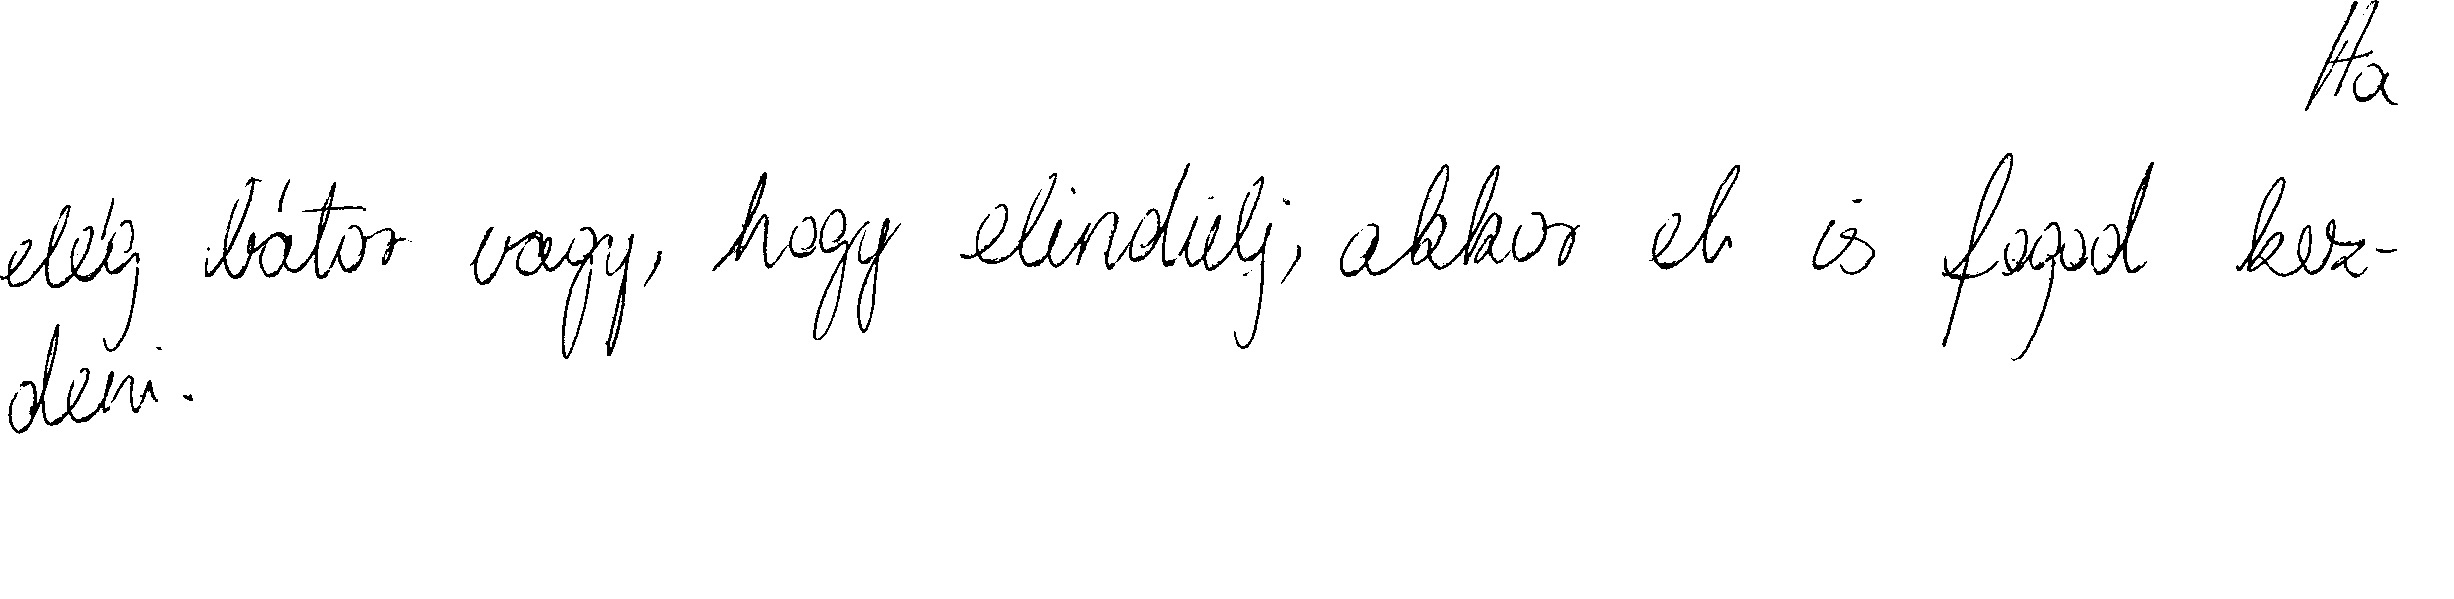 Ha
elég bátor vagy, hogy elindulj, akkor el is fogod kez-
deni.